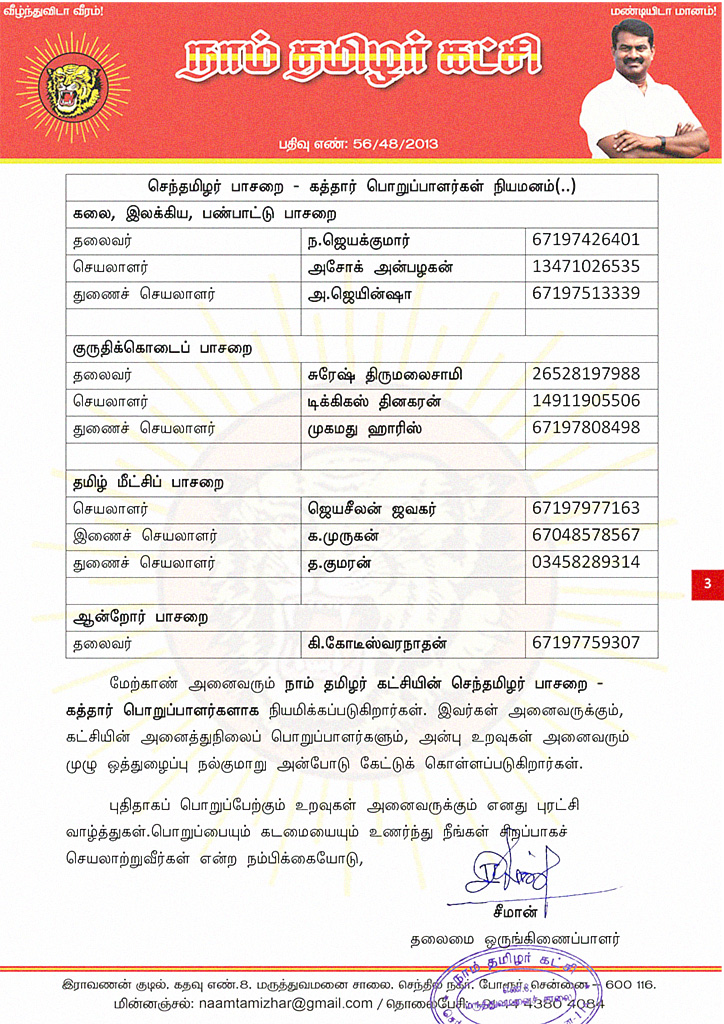 வீழ்ந்துவிடா வீரம்!
மண்டியிடா மானம்!
நாம் தமிழர் கட்சி
பதிவு எண்: 56/48/2013
செந்தமிழர் பாசறை – கத்தார் பொறுப்பாளர்கள் நியமனம்(..)
கலை, இலக்கிய, பண்பாட்டு பாசறை
தலைவர் ந.ஜெயக்குமார் 67197426401
செயலாளர் அசோக் அன்பழகன் 13471026535
துணைச் செயலாளர் அ.ஜெயின்ஷா 67197513339
குருதிக்கொடைப் பாசறை
தலைவர் சுரேஷ் திருமலைசாமி 26528197988
செயலாளர் டிக்கிகஸ் தினகரன் 14911905506
துணைச் செயலாளர் முகமது ஹாரிஸ் 67197808498
தமிழ் மீட்சிப் பாசறை
செயலாளர் ஜெயசீலன் ஜவகர் 67197977163
இணைச் செயலாளர் க.முருகன் 67048578567
துணைச் செயலாளர் த.குமரன் 03458289314
3
ஆன்றோர் பாசறை
தலைவர் கி.கோடீஸ்வரநாதன் 67197759307
மேற்காண் அனைவரும் நாம் தமிழர் கட்சியின் செந்தமிழர் பாசறை –
கத்தார் பொறுப்பாளர்களாக நியமிக்கப்படுகிறார்கள். இவர்கள் அனைவருக்கும்,
கட்சியின் அனைத்துநிலைப் பொறுப்பாளர்களும், அன்பு உறவுகள் அனைவரும்
முழு ஒத்துழைப்பு நல்குமாறு அன்போடு கேட்டுக் கொள்ளப்படுகிறார்கள்.
புதிதாகப் பொறுப்பேற்கும் உறவுகள் அனைவருக்கும் எனது புரட்சி
வாழ்த்துகள்.பொறுப்பையும் கடமையையும் உணர்ந்து நீங்கள் சிறப்பாகச்
செயலாற்றுவீர்கள் என்ற நம்பிக்கையோடு,
சீமான்
தலைமை ஒருங்கிணைப்பாளர்
நாம் தமிழர் கட்சி
இராவணன் குடில். கதவு எண்.8. மருத்துவமனை சாலை. செந்தில் நகர். போரூர். சென்னை – 600 116.
மின்னஞ்சல்: naamtamizhar@gmail.com / தொலைபேசி: 044 4380 4084